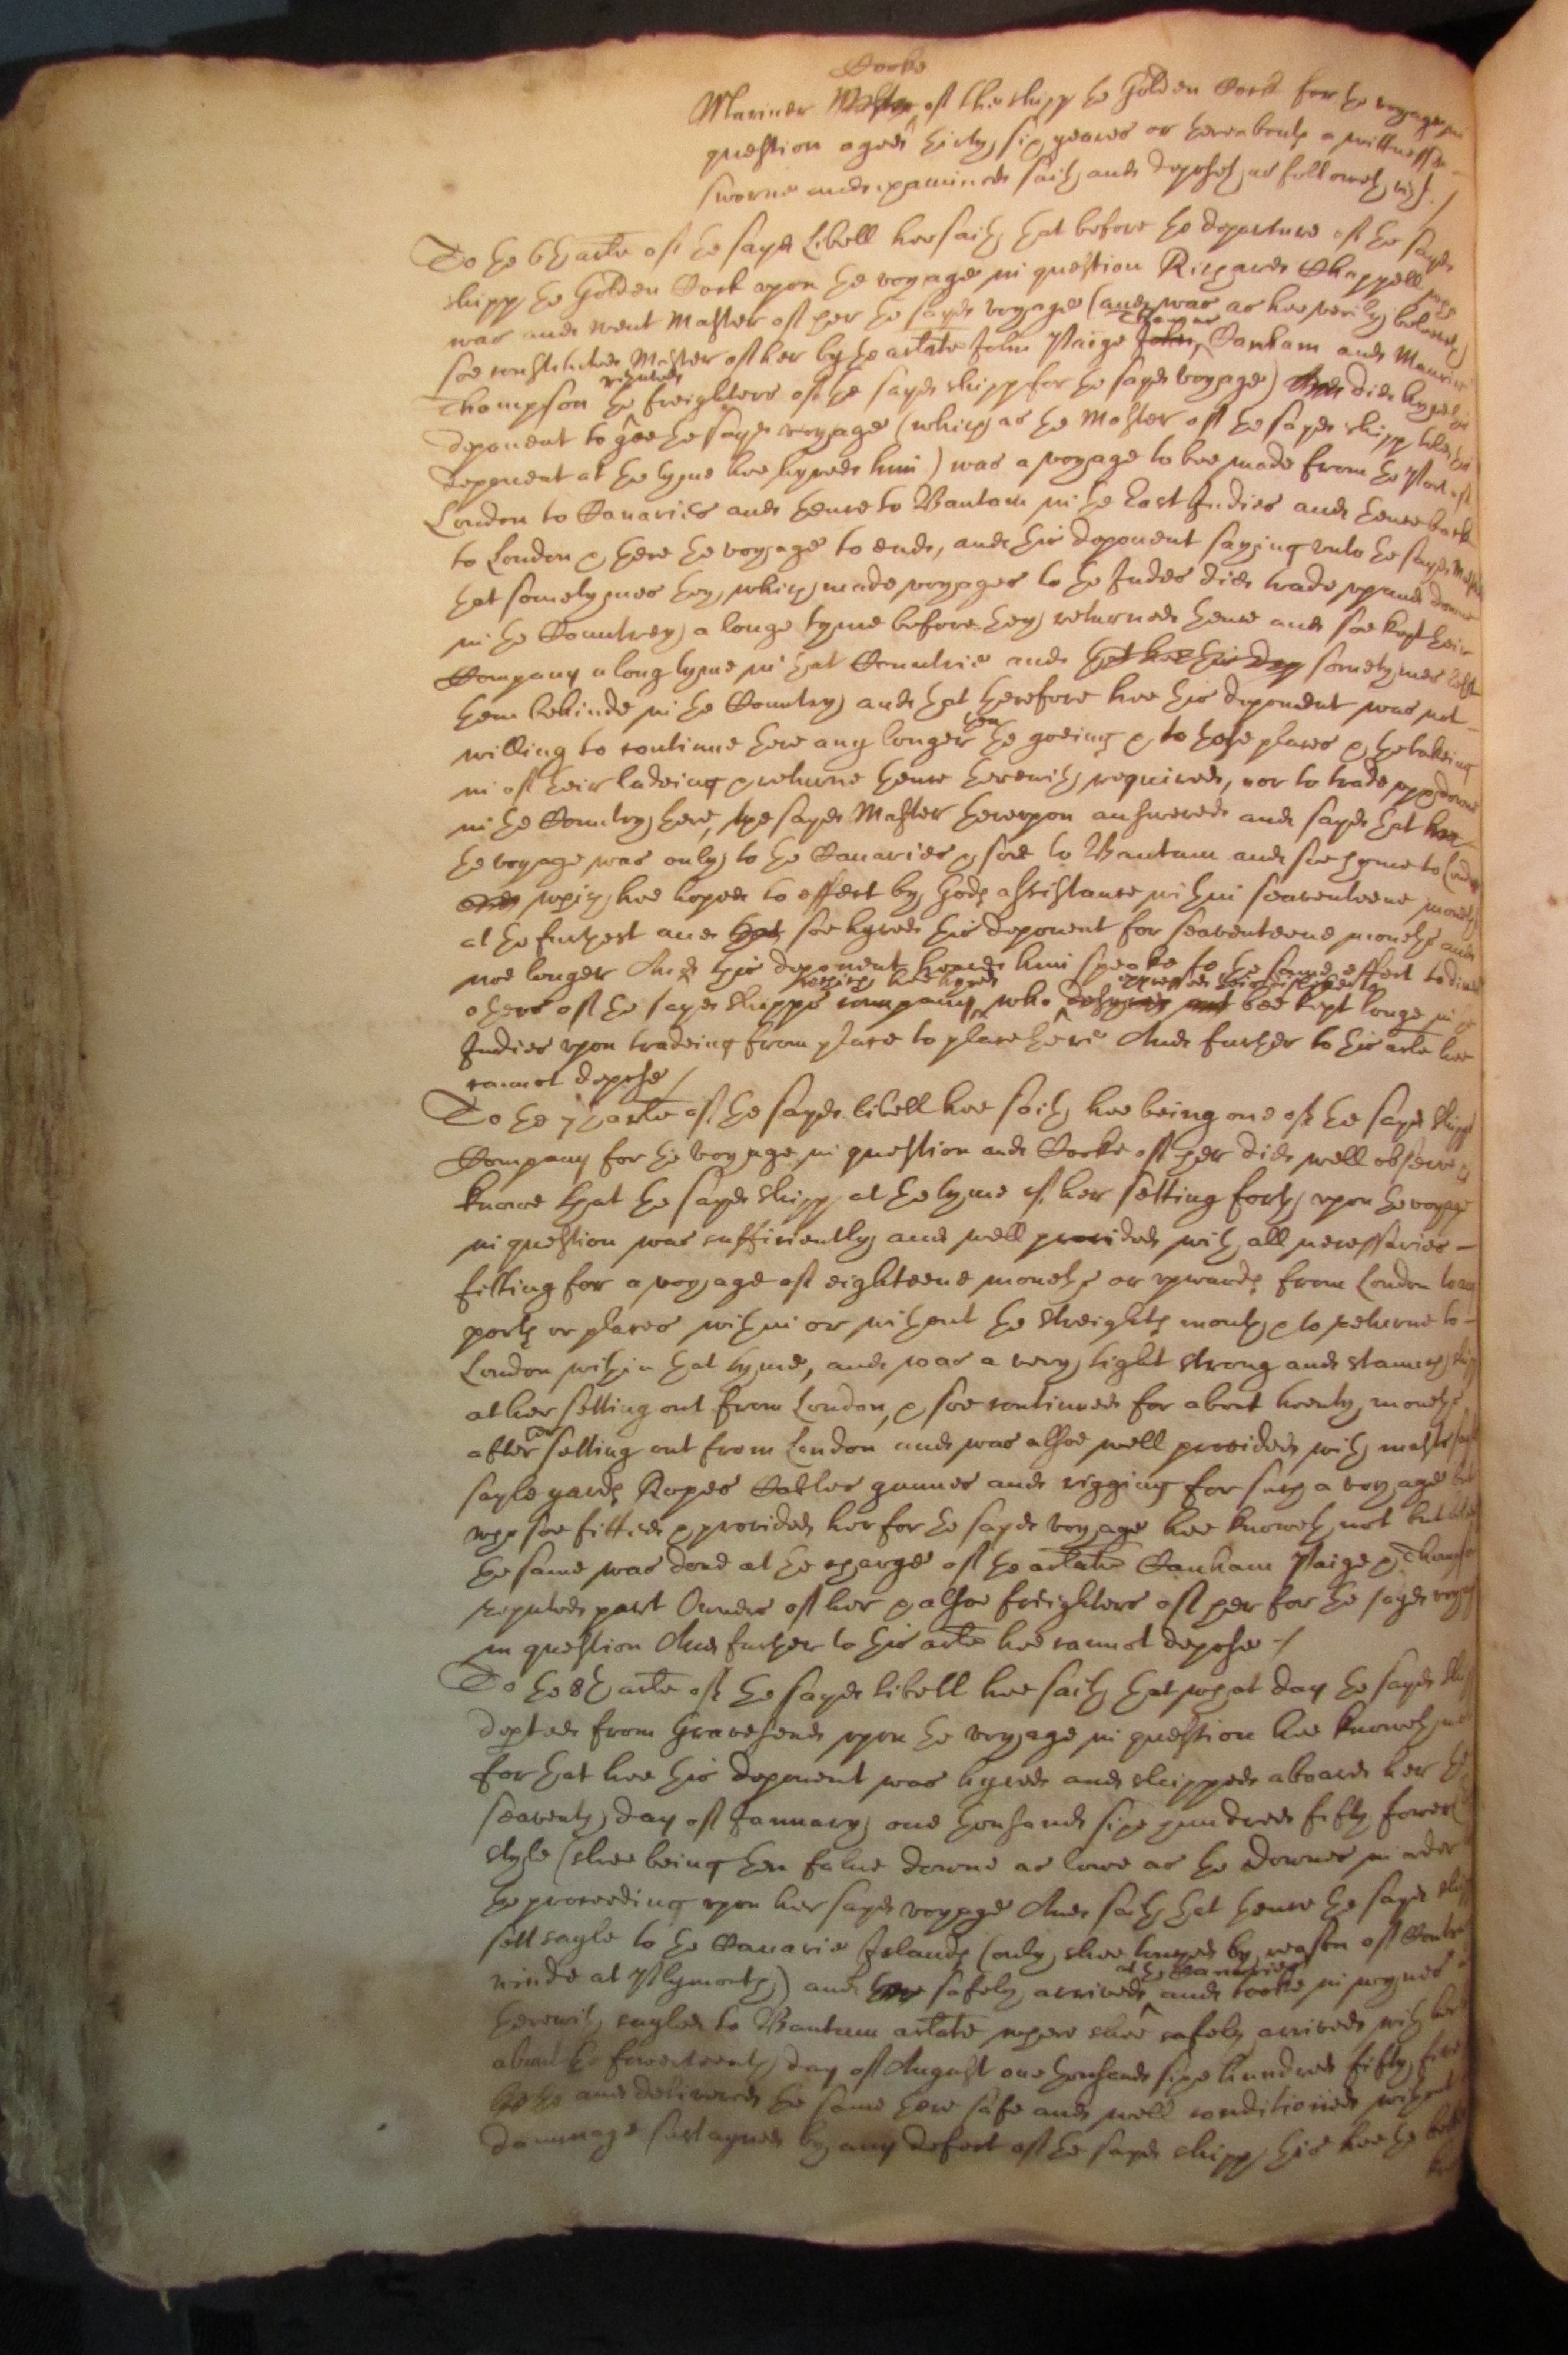 Cooke
Mariner Master of the shipp the Golden Cock for the voyage in
question aged thirty six yeares or thereabouts a wittnesse
sworne and examined saith and deposeth as followeth vizt. /
To the 6th arle of the sayd libell hee saith that before the departure of the sayd
shipp the Golden Cock upon the voyage in question Richard Chappell
was and went Master of her the sayd voyage (and was as hee verily beleeveth
Thomas
soe constituted Master of her by the arlate John Paige John Canham and Maurice
reputed
Thompson the freighters of the sayd shipp for the sayd voyage) And did hyre this
deponent to goe the sayd voyage (which as the Master of the sayd shipp told this
deponent at the tyme hee hyred him) was a voyage to bee made from the Port of
London to Canaries and thence to Bantam in the East Indies and thence back
to London & there the voyage to ende, and this deponent saying unto the sayd Master
that sometymes they which made voyages to the Indes did trade upp and downe
in the Countrey a longe tyme before they returned thence and soe kept their
Company a long tyme in that Countrie and that hee this dep sometymes left
them behinde in the Country and that therefore hee this deponent was not
willing to continue there any longer then the goeing & to those places & the takeing
in of their ladeing & returne thence therewith required, nor to trade upp & downe
in the Country there, the sayd Master thereupon answered and sayd that
the voyage was only to the Canaries & soe to Bantam and soe home to London
which hee hoped to effect by Gods assistance within seaventeene moneths
at the furthest and that soe hyred this deponent for seaventeene moneths and
noe longer And this deponent heard him speake to the same effect to divers
which hee hyred
others of the sayd shipps company who bee kept longe in the
Indies upon tradeing from place to place there And further to this arle hee
cannot depose /
To the 7th arle of the sayd libell hee saith hee being one of the sayd shipps
Company for the voyage in question and Cooke of her did well observe &
knowe that the sayd shipp at the tyme of her setting forth upon the voyage
in question was sufficiently and well provided with all necessaries -
fitting for a voyage of eighteene moneths or upwards from London to any
ports or places within or without the Streights mouth & to returne to -
London within that tyme, and was a very tight strong and stanch shipp
at her setting out from London, & soe continued for about twenty moneths
her
after setting out from London and was alsoe well provided with masts sayles
sayle yards Ropes Cables gunnes and rigging for such a voyage but
who soe fitted & provided her for the sayd voyage hee knoweth not but
the same was done at the charge of the arlate Canham Paige & Thompson
reputed part Owners of her & alsoe freighters of her for the sayd voyage
in question And further to this arle hee cannot depose -/
To the 8th arle of the sayd libell hee saith that what day the sayd shipp
depted from Gravesend upon the voyage in question hee knoweth not
for that hee this deponent was hyred and shipped aboard her the
seaventh day of January one thousand sixe hundred fifty fower
style (shee being then falne downe as lowe as the Downes in order
the proceeding upon her sayd voyage And saith that thence the sayd shipp
sett sayle to the Canarie Islands (only shee stayed by reason of Contrary
at the Canaries
winde at Plymouth) and safely arrived and tooke in wynes &
therewith sayled to Bantam arlate where shee safely arrived with her
about the fowerteenth day of August one thousand sixe hundred fifty five
and delivered the same there safe and well conditioned without
dammage sustayned by any defect of the sayd shipp, this hee the better